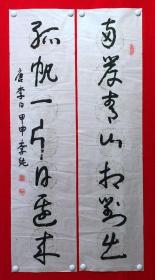 两岸青山相对出
孤帆一片日边来
唐李白 甲申 李纯